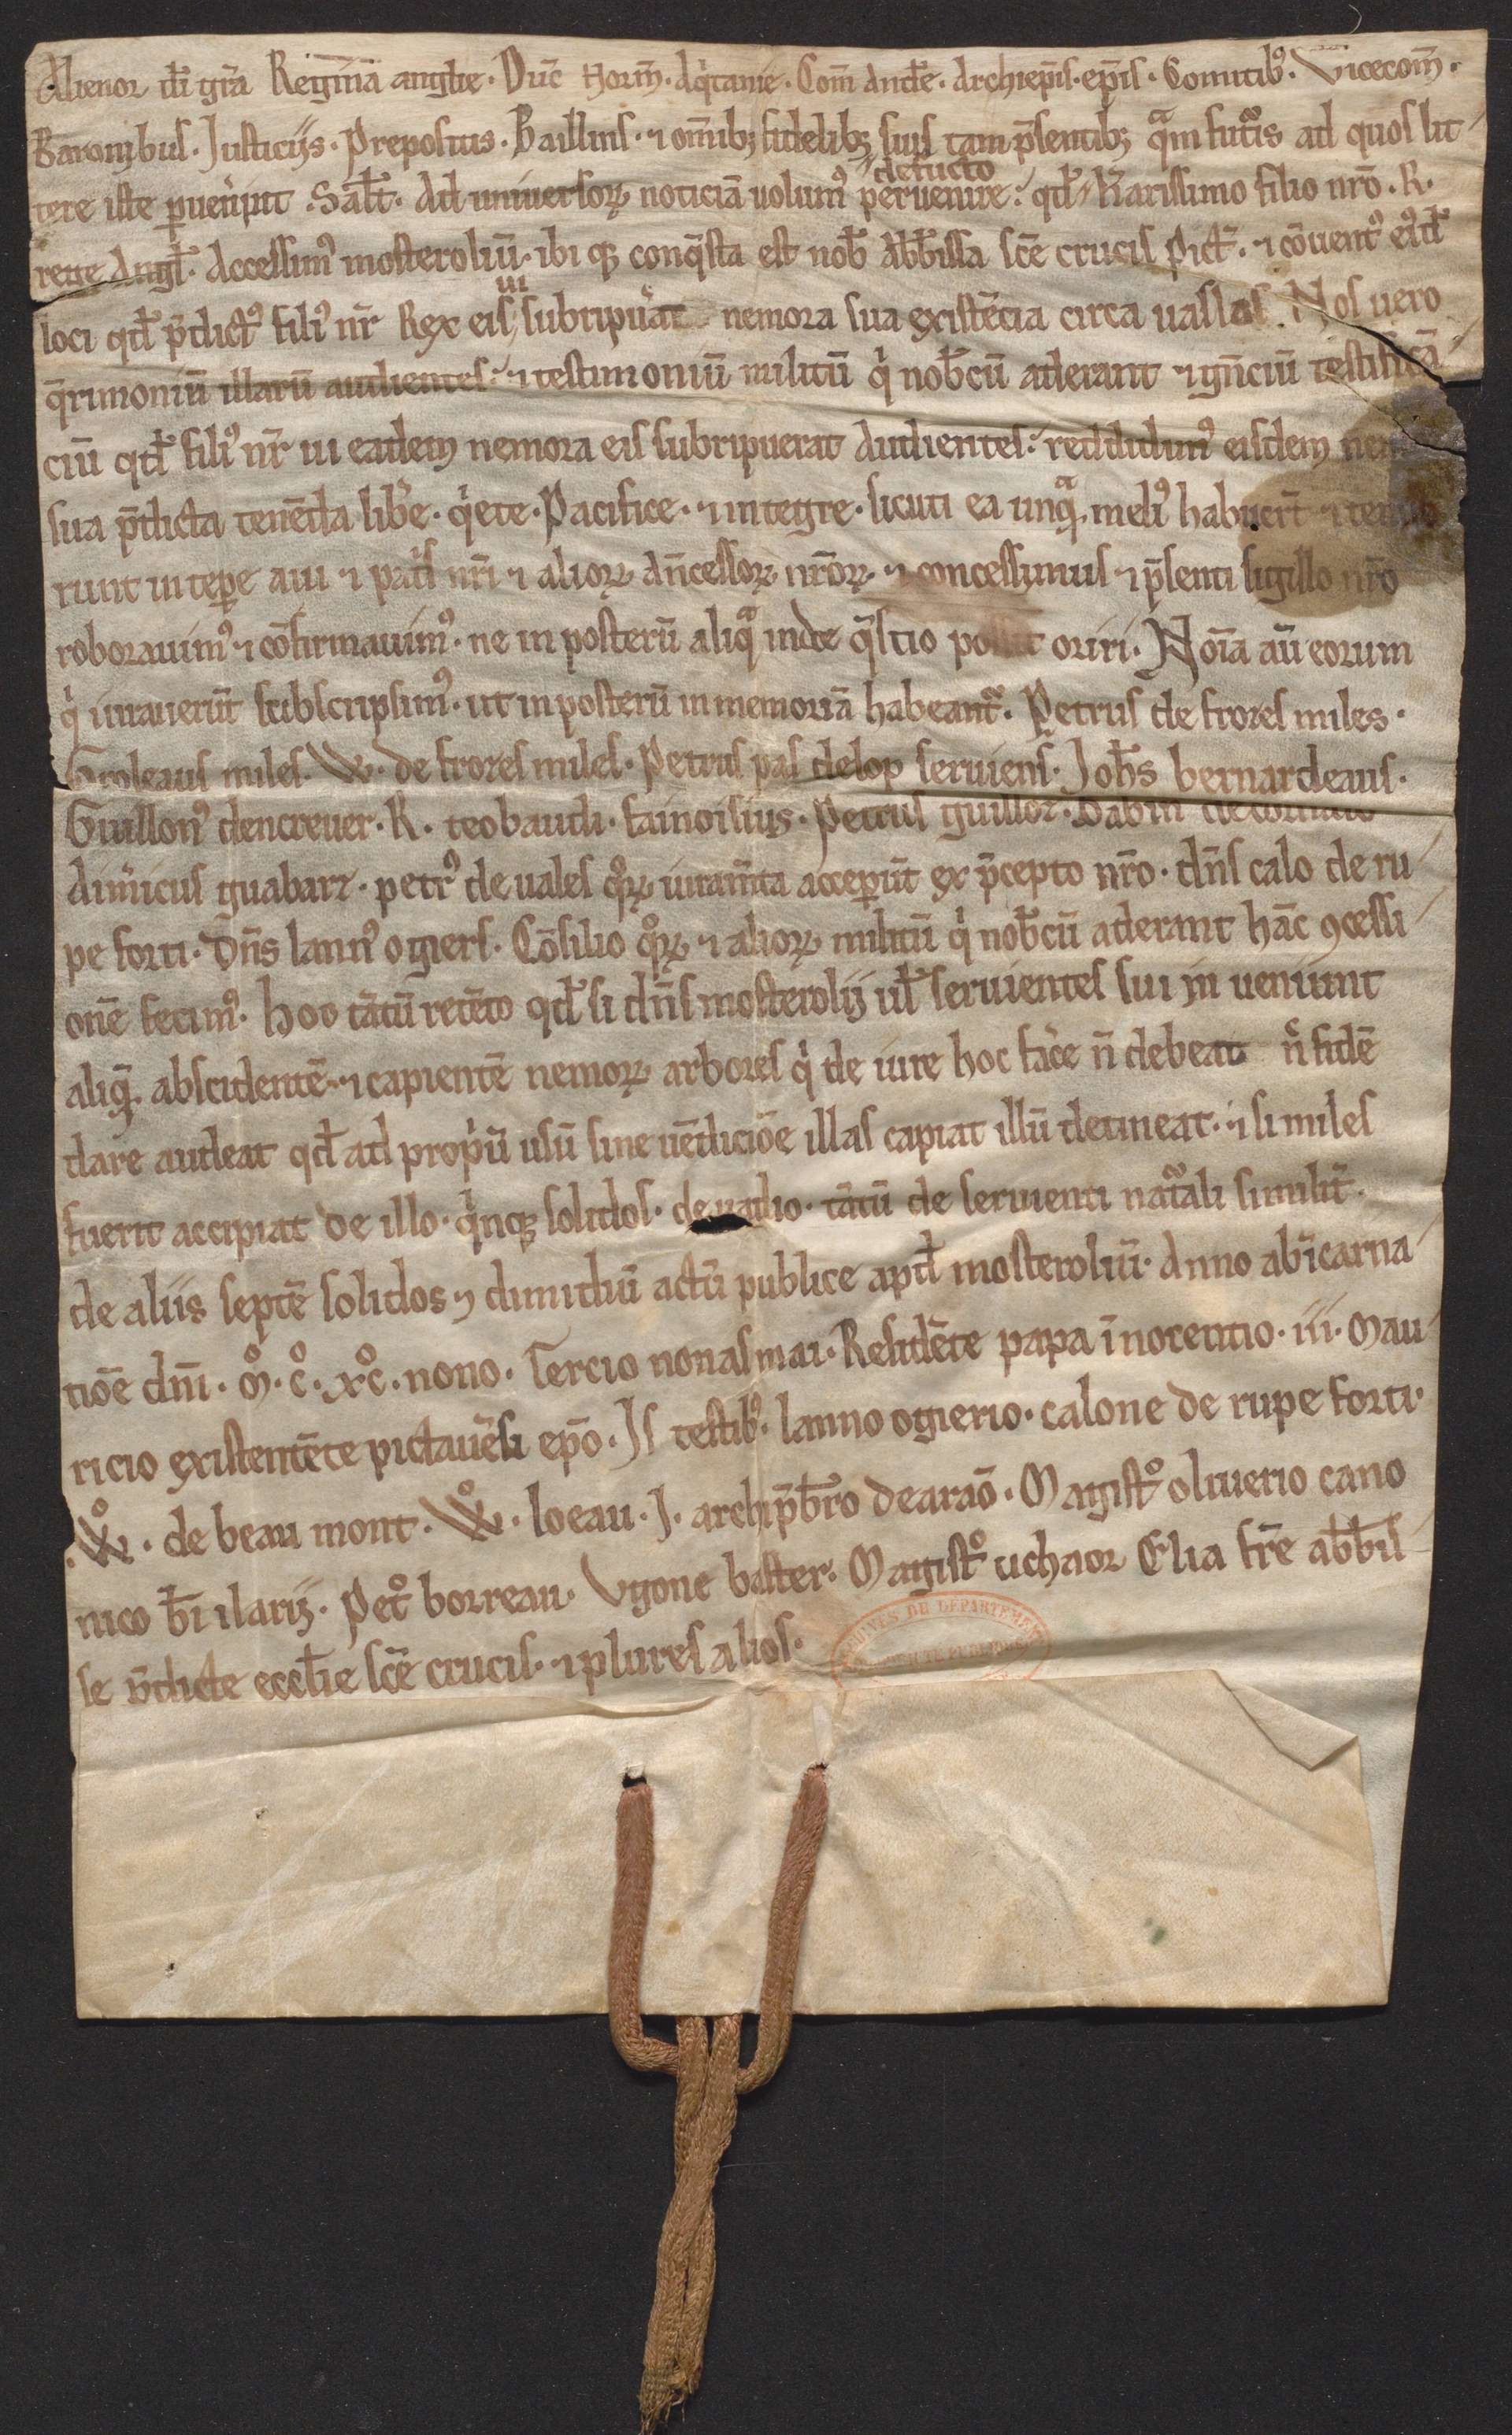 Alienor dī gr̄a Regina anglie. Duc̄ Norm̄. Aqͥtanie. Com̄ Ande. Archiep̄is. ep̄is. Comitibꝰ. Vicecom̄.
Baronibus. Justiciis. Prepositis. Baillivis. ⁊ om̄ibꝫ fidelibꝫ suis tam p̄sentibꝫ qͣm futͥis ad quos lit
tere iste ꝑuen̓int Sal̄t. Ad universoꝝ noticiā volumꝰ pervenire: qđ defucto
Karissimo filio nr̄o. R.
rege Angł. Accessimꝰ mosteroliū. ibi qꝫ conq̄sta est nob̄ Abb̄issa sc̄e crucis Pict̄. ⁊ cōventꝰ eiꝰđ
loci qđ p̄dictꝰ filiꝰ nr̄ Rex eis vi subripuāt nemora sua existēcia circa vaslas. Nos vero
q̄rimoniū illarū audientes: ⁊ testimoniū militū qͥ nob̄cū aderant ⁊ gn̄ciū testificā
ciū qđ filiꝰ nr̄ vi eadem nemora eis subripuerat Audientes: reddidimꝰ eisdem nem
sua p̄dicta tenēda libe. qͥete. Pacifice. ⁊ integre. sicuti ea unqͣ meliꝰ habuer̄t ⁊ tenue
runt in tēpe avi ⁊ pat̓s nr̄i ⁊ alioꝝ An̄cessoꝝ nr̄oꝝ. ⁊ concessimus ⁊ p̄senti sigillo nr̄o
roboravimꝰ ⁊ cōfirmavimꝰ. ne in posterū aliqͣ inde q̄stio possit oriri. Noīa aū eorum
qͥ iuraverūt subscripsimꝰ. ut in posterū in memoriā habeant̃. Petrus de frozes miles.
miles. W. de frozes miles. Petrus pas delop serviens. Joh̄s bernardeaus.
Guillonꝰ dencrever. R. teobaudi. fainoisius. Petrus guilloz. Babin
Aim̓icus guabarz. petrꝰ de vales qͦꝝ iuram̄ta acceꝑūt ex p̄cepto nr̄o. dn̄s calo de ru
pe forti. Dn̄s lannꝰ ogiers. Cōsilio qͦꝝ ⁊ alioꝝ militū qͥ nob̄cū aderant hāc ꝯcessi
onē fecimꝰ. hoc tātū retēto qđ si dn̄s mosterolij vł servientes sui in veniunt
aliqͣ. abscidentē. ⁊ capientē nemoꝝ arbores qͥ de iure hoc fac̓e n̄ debeat n̓ fidē
dare audeat qđ ad propͥū usū sine vēdiciōe illas capiat illū detineat. ⁊ si miles
fuerit accipiat de illo. qͥnqꝫ solidos. de vadio. tātū de servienti natͣali similit̄.
de aliis septē solidos ⁊ dimidiū actū publice apđ mosteroliū. Anno ab īcarna
tiōe dn̄i. Mͦ. Cͦ. XCͦ. nono. Tercio nonas mai. Residēte papa īnocentio. iii. Mau
ricio existentēte pictavēsi ep̄o. Is testibꝰ. lanno ogierio. calone de rupe forti.
Wͦ. de beau mont. Wͦ. loeau. J. archip̄b̄ro dearaō. Magistͦ oliverio cano
nico b̄i ilarij. Petͦ borreau. Vgone baster. Magistͦ uchaor Elia fr̄e abb̄is
se p̄dicte eccl̄ie sc̄e crucis. ⁊ plures alios.
ARCHIVES DU DÉPARTEMENT